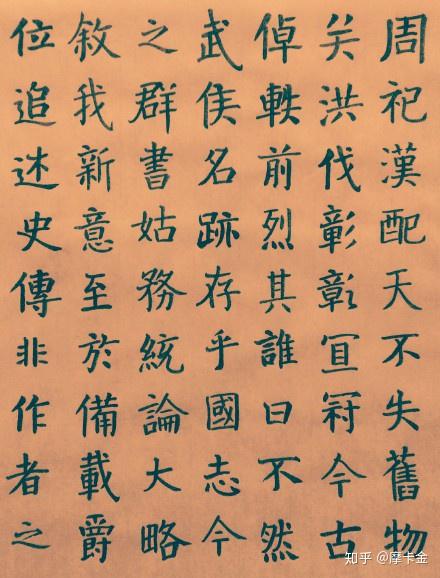 周祀漢配天不失舊物
矣洪伐彰彰宜冠今古
倬軼前烈其誰曰不然
武侯名跡存乎國志今
之群書姑務統論大略
敘我新意至於備載爵
位追述史傳非作者之
知乎 @摩卡金